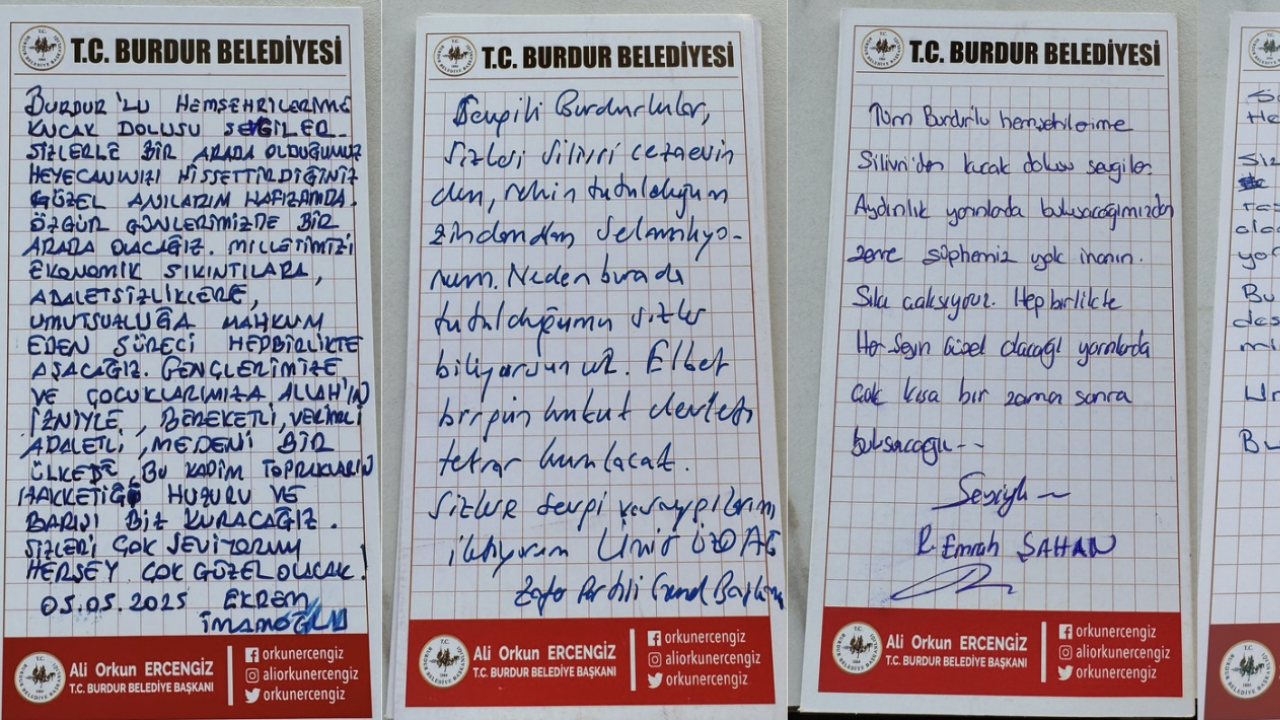 T.C. BURDUR BELEDİYESİ
BURDUR'LU HEMŞEHRİLERİME
KUCAK DOLUSU SEVGİLER
SİZLERLE BİR ARADA OLDUĞUMUZ
HEYECANINIZI HİSSETTİRDİĞİNİZ
GÜZEL ANILARIM HAFIZAMDA.
ÖZGÜR GÜNLERİMİZDE BİR
ARADA OLACAĞIZ. MİLLETİMİZİ
EKONOMİK SIKINTILARA,
ADALETSİZLİKLERE,
UMUTSUZLUĞA MAHKUM
EDEN SÜRECİ HEPBİRLİKTE
AŞACAĞIZ. GENÇLERİMİZE
VE ÇOCUKLARIMIZA ALLAH'IN
İZNİYLE, BEREKETLİ, VERİMLİ
ADALETLİ, MEDENİ BİR
ÜLKEDE, BU KADİM TOPRAKLARIN
HAKKETİĞİ HUZURU VE
BARIŞI BİZ KURACAĞIZ.
SİZLERİ ÇOK SEVİYORUM
HERŞEY ÇOK GÜZEL OLACAK.
05.05.2025 EKREM
İMAMOĞLU
Ali Orkun ERCENGİZ
T.C. BURDUR BELEDİYE BAŞKANI
orkunercengiz
aliorkunercengiz
orkunercengiz
T.C. BURDUR BELEDİYESİ
Sevgili Burdurlular,
Sizleri Silivri cezaevin
den, rehin tutulduğum
zindandan Selamlıyo-
rum. Neden burada
tutulduğumu sizler
biliyorsunuz. Elbet
birgün hukuk devleti
tekrar kurulacak.
Sizlere sevgi ve saygılarımı
iletiyorum Ümit ÖZDAĞ
Zafer Partisi Genel Başkanı
Ali Orkun ERCENGİZ
T.C. BURDUR BELEDİYE BAŞKANI
orkunercengiz
aliorkunercengiz
orkunercengiz
T.C. BURDUR BELEDİYESİ
Tüm Burdur'lu hemşehrilerime
Silivri'den kucak dolusu sevgiler.
Aydınlık yarınlarda buluşacağımızdan
zerre şüphemiz yok inanın.
Sıkı çalışıyoruz. Hep birlikte
Her Şeyin Güzel olacağı yarınlarda
çok kısa bir zaman sonra
buluşacağız --
Sevgiyle
R. Emrah ŞAHAN
Ali Orkun ERCENGİZ
T.C. BURDUR BELEDİYE BAŞKANI
orkunercengiz
aliorkunercengiz
orkunercengiz